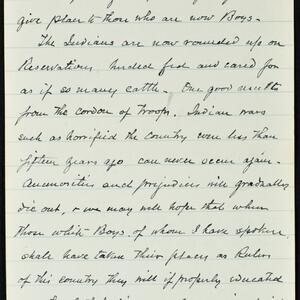 give place to those who are now Boys-
The Indians are now rounded up on
Reservations, herded fed and cared for
as if so many cattle - One good results
from the cordon of Troops. Indian wars
such as horrified the country even less than
fifteen years ago can never occur again.
Animosities and prejudices will gradually
die out, & we may well hope that when
those white Boys, of whom I have spoken,
shall have taken their places as Rulers
of this country they will if properly educated